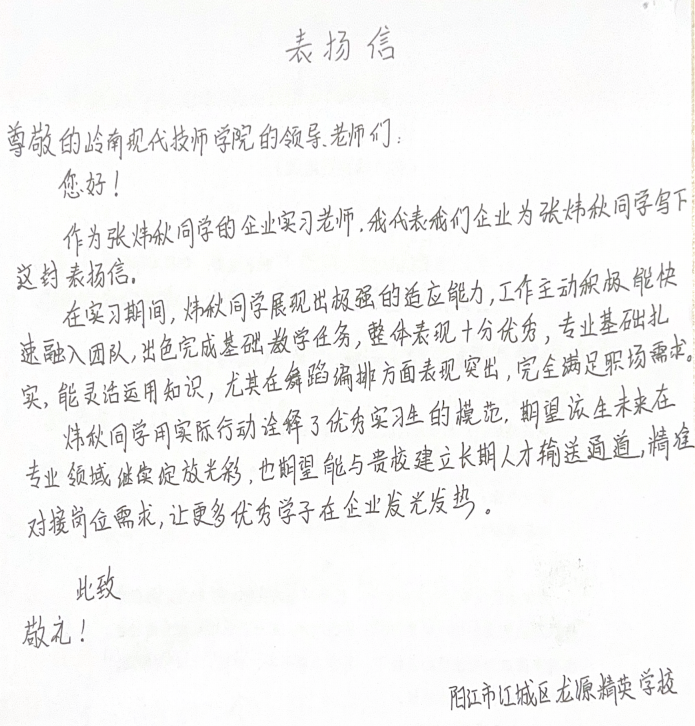 表扬信
尊敬的岭南现代技师学院的领导、老师们：
您好！
作为张炜秋同学的企业实习老师，我代表我们企业为张炜秋同学写下
这封表扬信。
在实习期间，炜秋同学展现出极强的适应能力，工作主动积极，能快
速融入团队，出色完成基础教学任务，整体表现十分优秀，专业基础扎
实，能灵活运用知识，尤其在舞蹈编排方面表现突出，完全满足职场需求。
炜秋同学用实际行动诠释了优秀实习生的模范，期望该生未来在
专业领域继续绽放光彩，也期望能与贵校建立长期人才输送通道，精准
对接岗位需求，让更多优秀学子在企业发光发热。
此致
敬礼！
阳江市江城区龙源精英学校